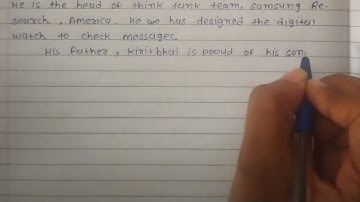 He is the head of think tank team, Samsung Re-
search, America. He we has designed the digital
watch to check messages.
His father, Kiritbhai is proud of his son.